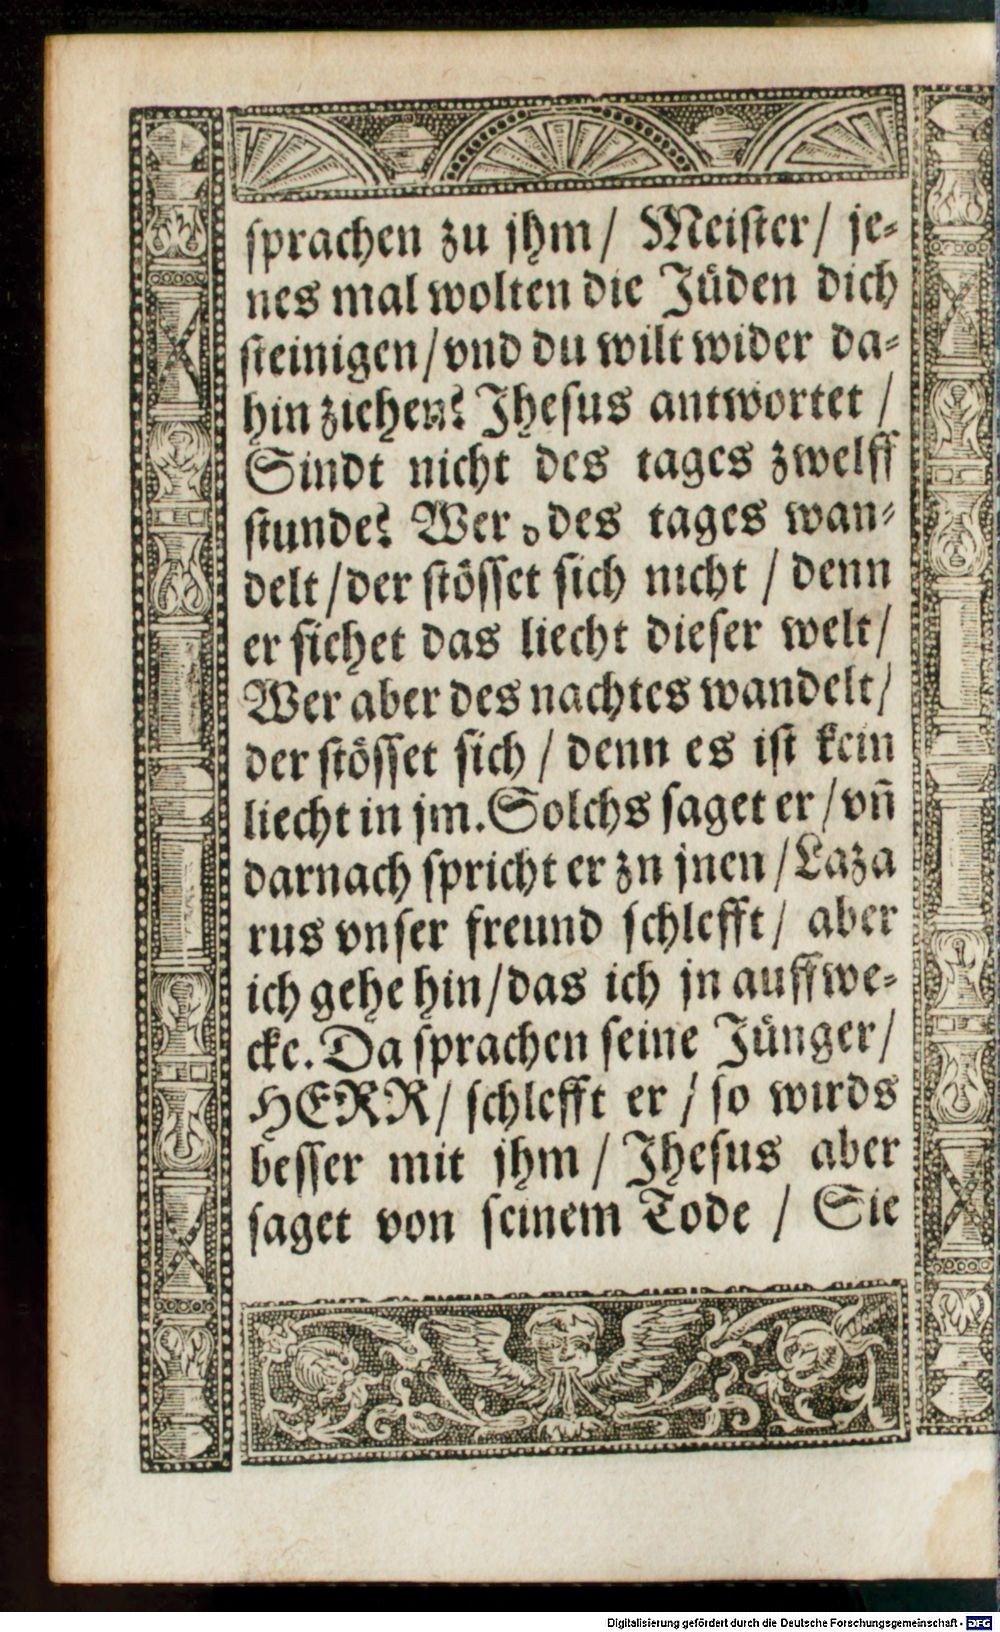 sprachen zu jhm/ Meister/ je-
nes mal wolten die Jüden dich
steinigen/vnd du wilt wider da-
hin ziehen? Jhesus antwortet /
Sindt nicht des tages zwelff
stunde? Wer des tages wan-
delt/der stösset sich nicht / denn
er sichet das liecht dieser welt/
Wer aber des nachtes wandelt/
der stösset sich / denn es ist kein
liecht in jm. Solchs saget er/vñ
darnach spricht er zn jnen /Laza
rus vnser freund schlefft/ aber
ich gehe hin/das ich jn auffwe-
cke. Da sprachen seine Jünger/
HERR/ schlefft er / so wirds
besser mit jhm / Jhesus aber
saget von seinem Tode / Sie
Digitalisierung gefördert durch die Deutsche Forschungsgemeinschaft - DFG